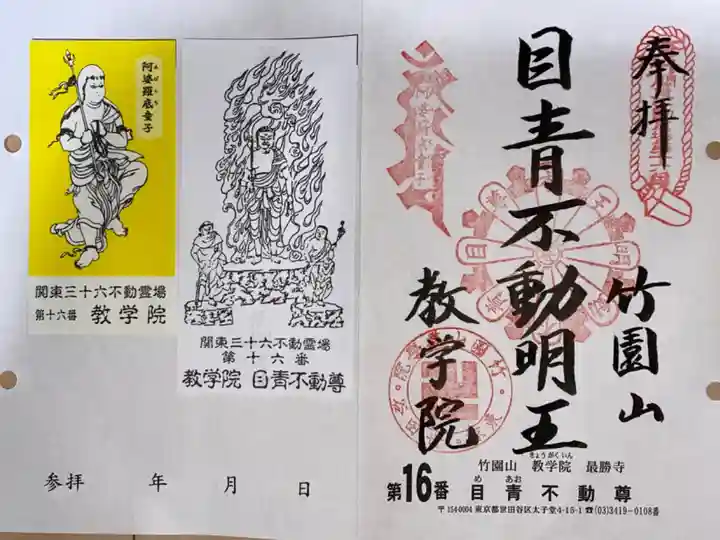 阿婆羅底童子
あばらち
関東三十六不動霊場
第十六番 教学院
関東三十六不動霊場
第十六番
教学院 目青不動尊
参拝 年 月 日
奉拝
竹園山
目青不動明王
教学院
竹園山 教学院 最勝寺
きょうがくいん
第16番 目青不動尊
め あお
〒154-0004 東京都世田谷区太子堂4-15-1 ☎(03)3419-0108番